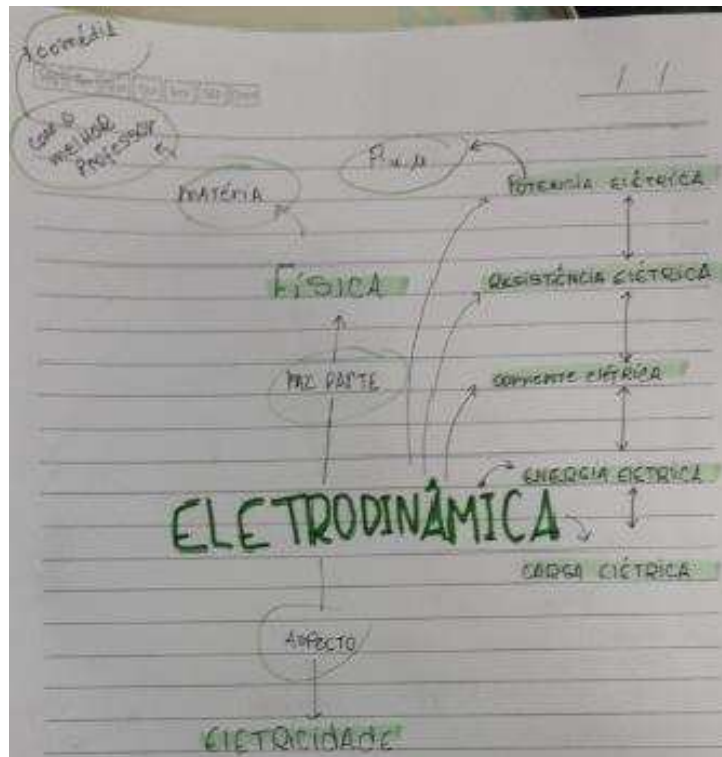 comédia
com o
melhor
Professor
/ /
matéria
Potencia elétrica
Física
Resistência elétrica
faz parte
corrente elétrica
energia eletrica
ELETRODINÂMICA
carga elétrica
Aspecto
eletricidade